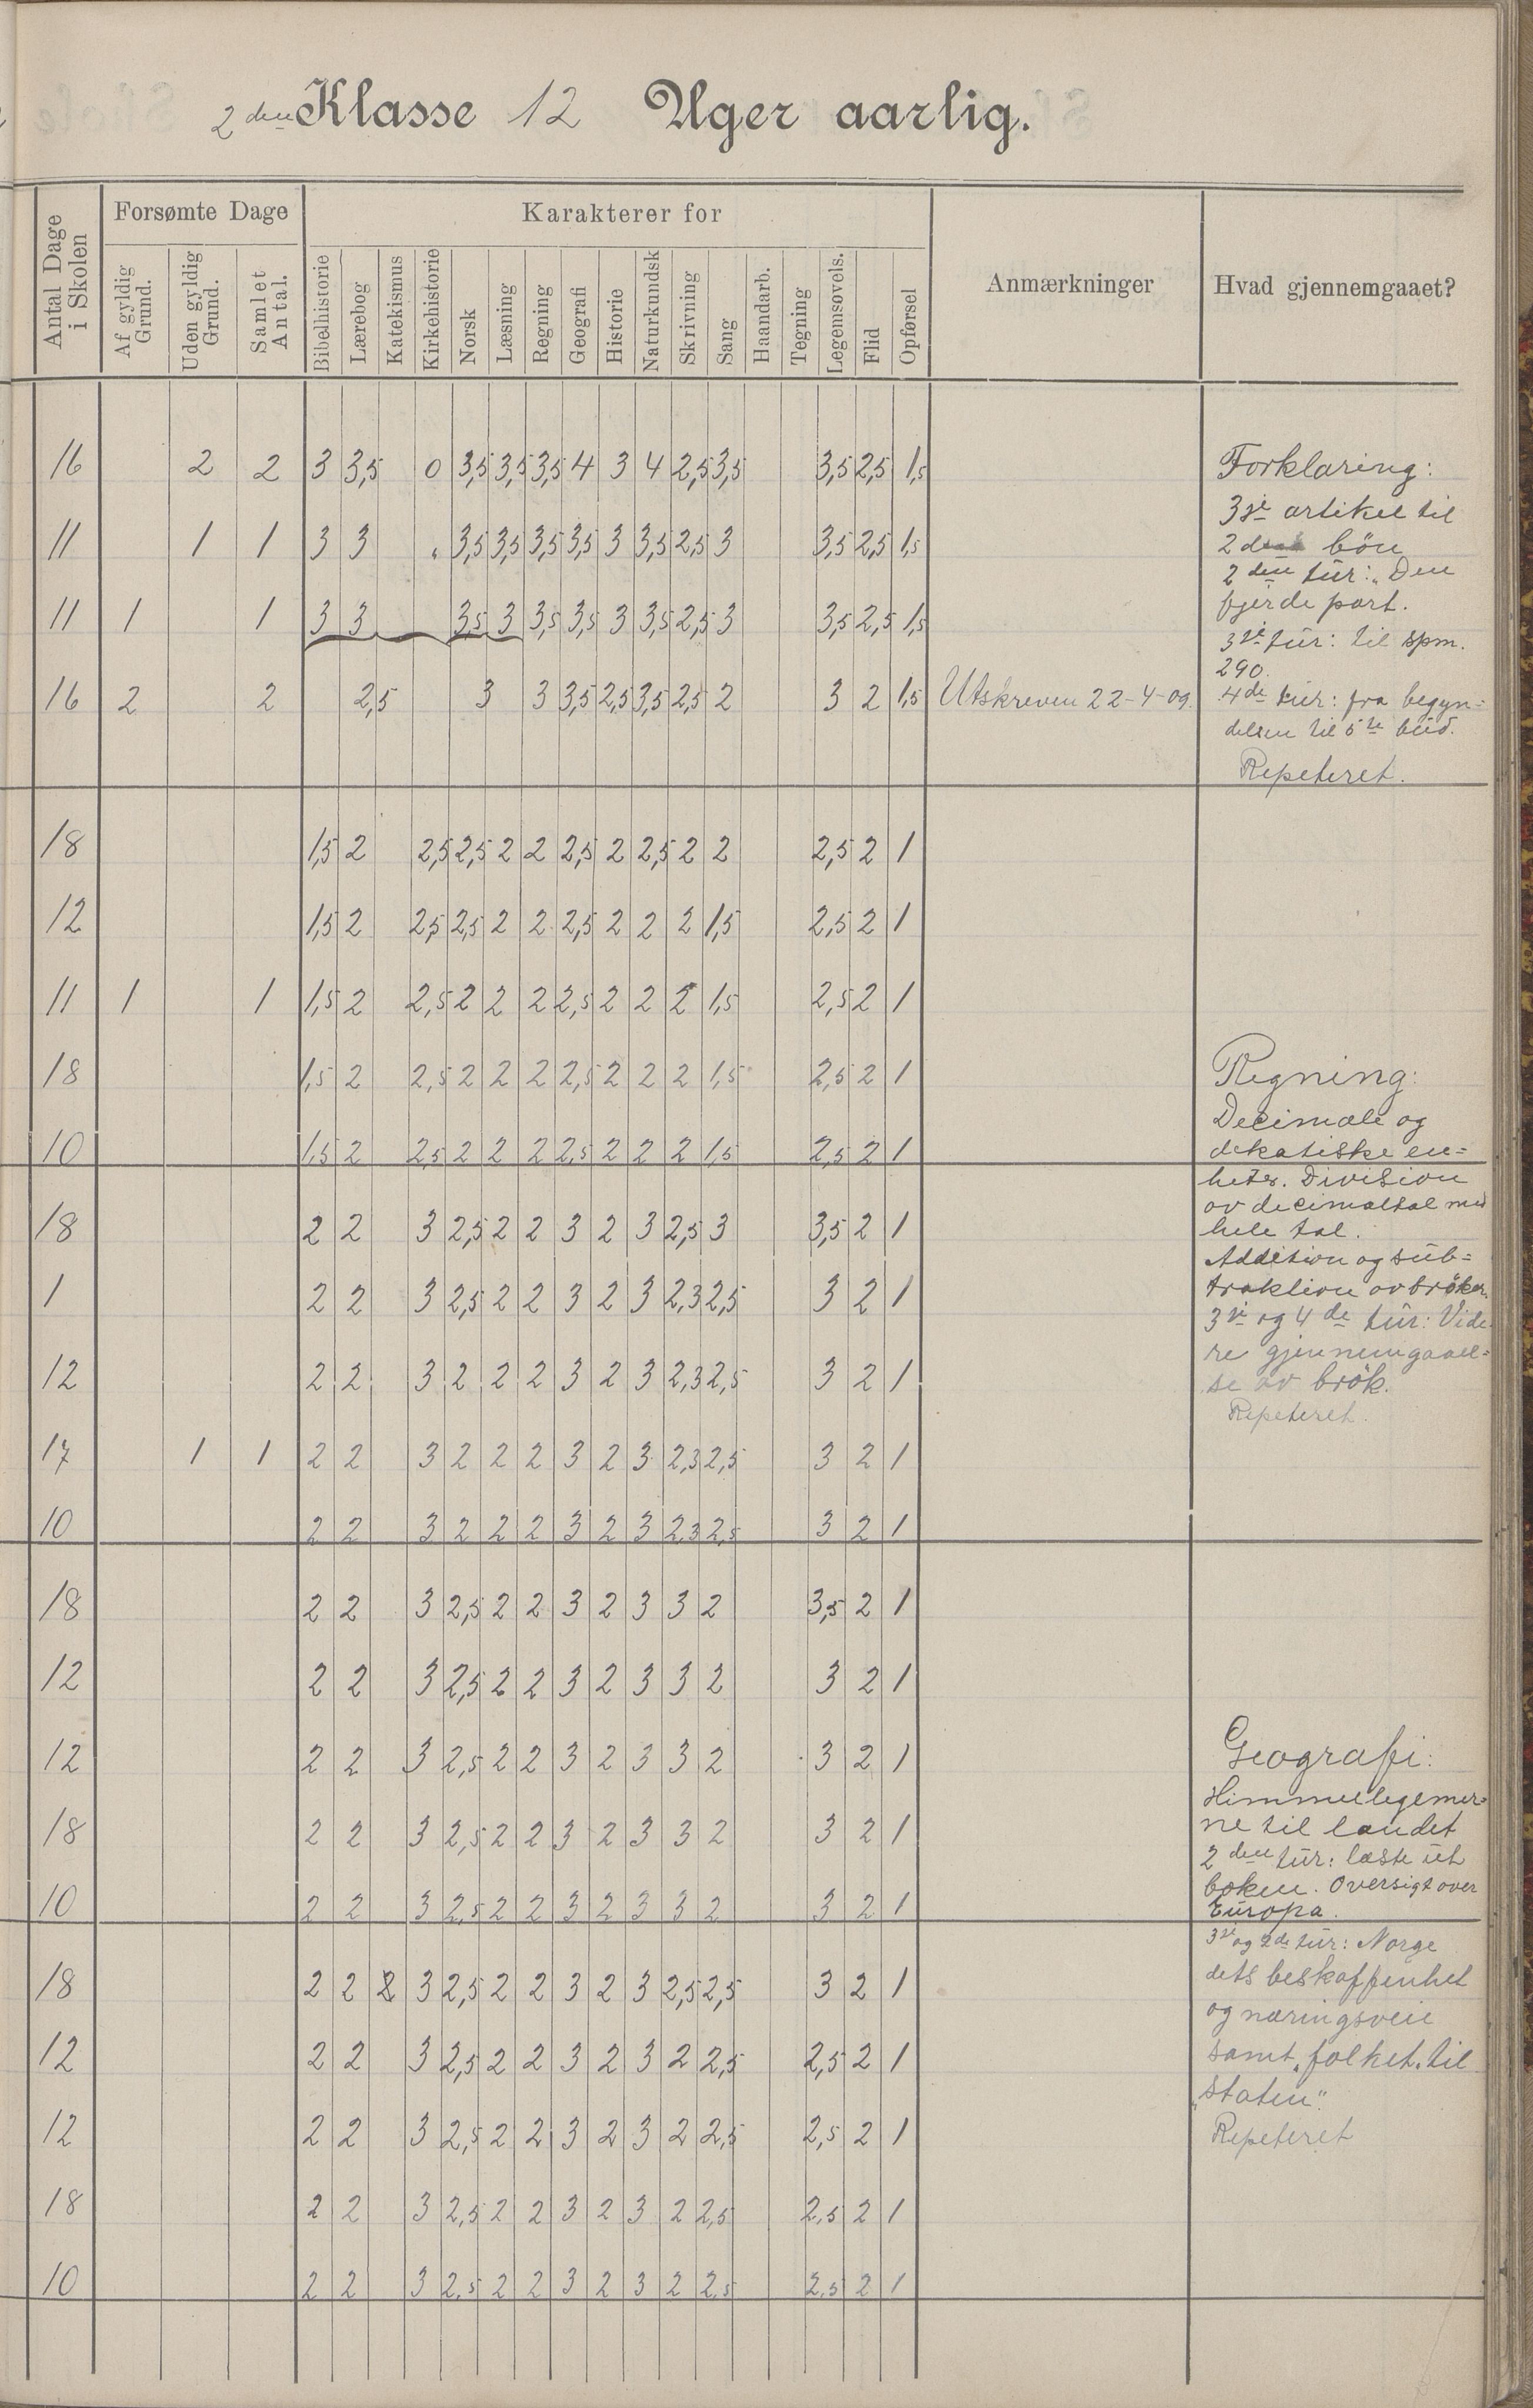 2den Klasse 12 Uger aarlig.
Antal Dage i Skolen
Forsømte Dage
Af gyldig Grund.
Uden gyldig Grund.
Samlet Antal.
Karakterer for
Bibelhistorie
Lærebog
Katekismus
Kirkehistorie
Norsk
Læsning
Regning
Geografi
Historie
Naturkundsk
Skrivning
Sang
Haandarb.
Tegning
Legemsøvels.
Flid
Opførsel
Anmærkninger
Hvad gjennemgaaet?
16 2 2 3 3,5 0 3,5 3,5 3,5 4 3 4 2,5 3,5 3,5 2,5 1,5
11 1 1 3 3 " 3,5 3,5 3,5 3,5 3 3,5 2,5 3 3,5 2,5 1,5
11 1 1 3 3 3,5 3 3,5 3,5 3 3,5 2,5 3 3,5 2,5 1,5
16 2 2 2,5 3 3 3,5 2,5 3,5 2,5 2 3 2 1,5 Utskreven 22-4-09.
18 1,5 2 2,5 2,5 2 2 2,5 2 2,5 2 2 2,5 2 1
12 1,5 2 2,5 2,5 2 2 2,5 2 2 2 1,5 2,5 2 1
11 1 1 1,5 2 2,5 2 2 2 2,5 2 2 2 1,5 2,5 2 1
18 1,5 2 2,5 2 2 2 2,5 2 2 2 1,5 2,5 2 1
10 1,5 2 2,5 2 2 2 2,5 2 2 2 1,5 2,5 2 1
18 2 2 3 2,5 2 2 3 2 3 2,5 3 3,5 2 1
1 2 2 3 2,5 2 2 3 2 3 2,3 2,5 3 2 1
12 2 2 3 2 2 2 3 2 3 2,3 2,5 3 2 1
17 1 1 2 2 3 2 2 2 3 2 3 2,3 2,5 3 2 1
10 2 2 3 2 2 2 3 2 3 2,3 2,5 3 2 1
18 2 2 3 2,5 2 2 3 2 3 3 2 3,5 2 1
12 2 2 3 2,5 2 2 3 2 3 3 2 3 2 1
12 2 2 3 2,5 2 2 3 2 3 3 2 3 2 1
18 2 2 3 2,5 2 2 3 2 3 3 2 3 2 1
10 2 2 3 2,5 2 2 3 2 3 3 2 3 2 1
18 2 2 2 3 2,5 2 2 3 2 3 2,5 2,5 3 2 1
12 2 2 3 2,5 2 2 3 2 3 2 2,5 2,5 2 1
12 2 2 3 2,5 2 2 3 2 3 2 2,5 2,5 2 1
18 2 2 3 2,5 2 2 3 2 3 2 2,5 2,5 2 1
10 2 2 3 2,5 2 2 3 2 3 2 2,5 2,5 2 1
Forklaring:
3je artikel til
2den bön
2den tur: "Den
fjerde part.
3je tur: til spm.
290.
4de tur: fra begyn=
delsen til 5te bud.
Repeteret.
Regning:
Decimale og
dekatiske en=
heter. Division
av decimaltal med
hele tal.
Addition og sub=
traktion av bröker.
3je og 4de tur: Vide
re gjennemgaael=
se av brök.
Repeteret.
Geografi:
Himmellegemer=
ne til landet
2den tur: læste ut
boken. Oversigt over
Europa.
3je og 4de tur: Norge
dets beskaffenhet
og næringsveie
samt "folket" til
"Staten".
Repeteret